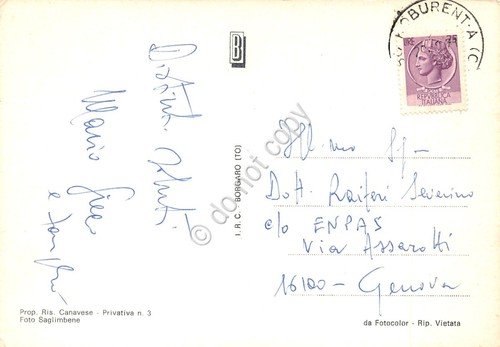 Distinti saluti
Mario Greco
e famiglia
Prop. Ris. Canavese - Privativa n. 3
Foto Saglimbene
I.R.C. BORGARO (TO)
B
ROBURENT
REPUBBLICA
ITALIANA
Ill.mo Sig.
Dott. Raiferi Severino
c/o ENPAS
Via Assarotti
16100 - Genova
da Fotocolor - Rip. Vietata
© do not copy